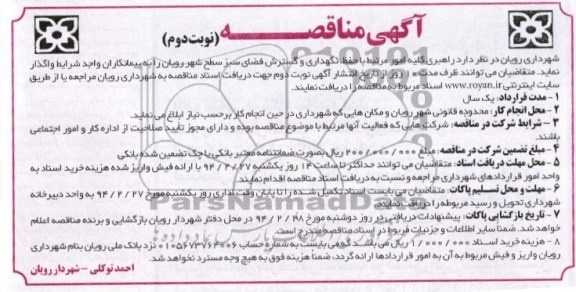 آگهی مناقصه (نوبت دوم)
شهرداری رویان در نظر دارد راهبری کلیه امور مرتبط با حفظ، نگهداری و گسترش فضای سبز سطح شهر رویان را به پیمانکاران واجد شرایط واگذار
نماید. متقاضیان می توانند ظرف مدت ۱۰ روز از تاریخ انتشار آگهی نوبت دوم جهت دریافت اسناد مناقصه به شهرداری رویان مراجعه یا از طریق
سایت اینترنتی www.royan.ir اسناد مربوط به مناقصه را دریافت نمایند.
۱ - مدت قرارداد: یک سال
۲ - محل انجام کار: محدوده قانونی شهر رویان و مکان هایی که شهرداری در حین انجام کار برحسب نیاز ابلاغ می نماید.
۳ - شرایط شرکت در مناقصه: شرکت هایی که فعالیت آنها مرتبط با موضوع مناقصه بوده و دارای مجوز تأیید صلاحیت از اداره کار و امور اجتماعی
باشند.
۴ - مبلغ تضمین شرکت در مناقصه: مبلغ ۲۰۰/۰۰۰/۰۰۰ ریال بصورت ضمانتنامه معتبر بانکی یا چک تضمین شده بانکی
۵ - محل مهلت دریافت اسناد: متقاضیان می توانند حداکثر تا ساعت ۱۴ روز یکشنبه ۹۴/۲/۲۷ با ارائه فیش واریز شده هزینه خرید اسناد به
واحد امور قراردادهای شهرداری مراجعه و نسبت به دریافت اسناد مناقصه اقدام نمایند.
۶ - مهلت و محل تسلیم پاکات: متقاضیان می بایست اسناد تکمیل شده را تا پایان وقت اداری روز یکشنبه مورخ ۹۴/۲/۲۷ به واحد دبیرخانه
شهرداری تحویل و رسید مربوطه را دریافت نمایند.
۷ - تاریخ بازگشایی پاکات: پیشنهادات دریافتی در روز دوشنبه مورخ ۹۴/۲/۲۸ در محل دفتر شهردار رویان بازگشایی و برنده مناقصه اعلام
خواهد شد. ضمناً سایر اطلاعات و جزئیات مربوط در اسناد مناقصه مندرج است.
۸ - هزینه خرید اسناد ۱/۰۰۰/۰۰۰ ریال می باشد که می بایست به شماره حساب ۰۱۰۵۶۷۳۷۶۴۰۰۶ نزد بانک ملی رویان بنام شهرداری
رویان واریز و فیش مربوط به آن به امور قراردادها ارائه گردد، ضمناً هزینه فوق به هیچ وجه مسترد نخواهد شد.
احمد توکلی - شهردار رویان
ParsNamadData